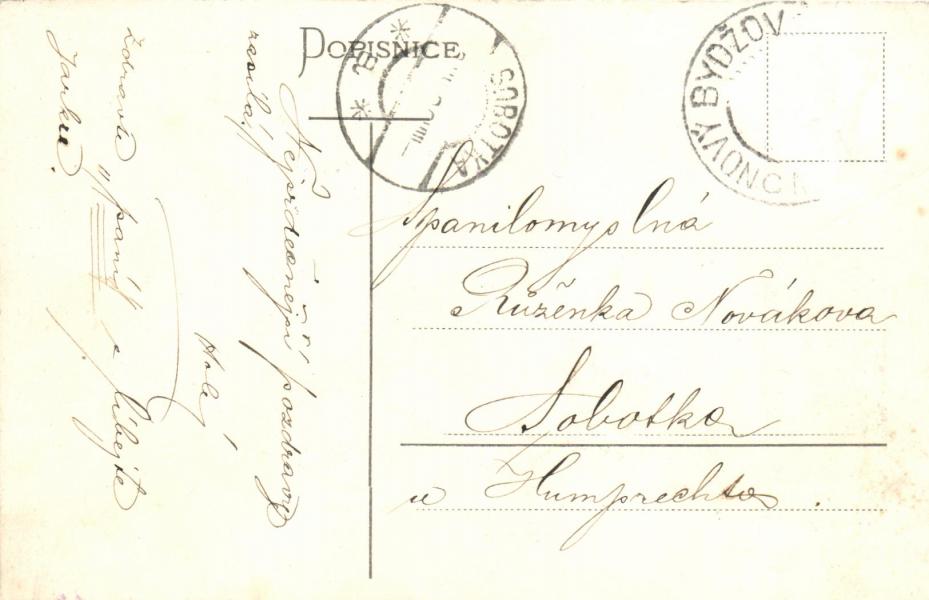 DOPISNICE
SOBOTKA
NOVÝ BYDŽOV
Nejsrdečnější pozdravy
zasílá
Zdravte „paní“ a líbejte
Jarku.
Spanilomyslná
Růženka Novákova
Sobotka
u Humprechta.